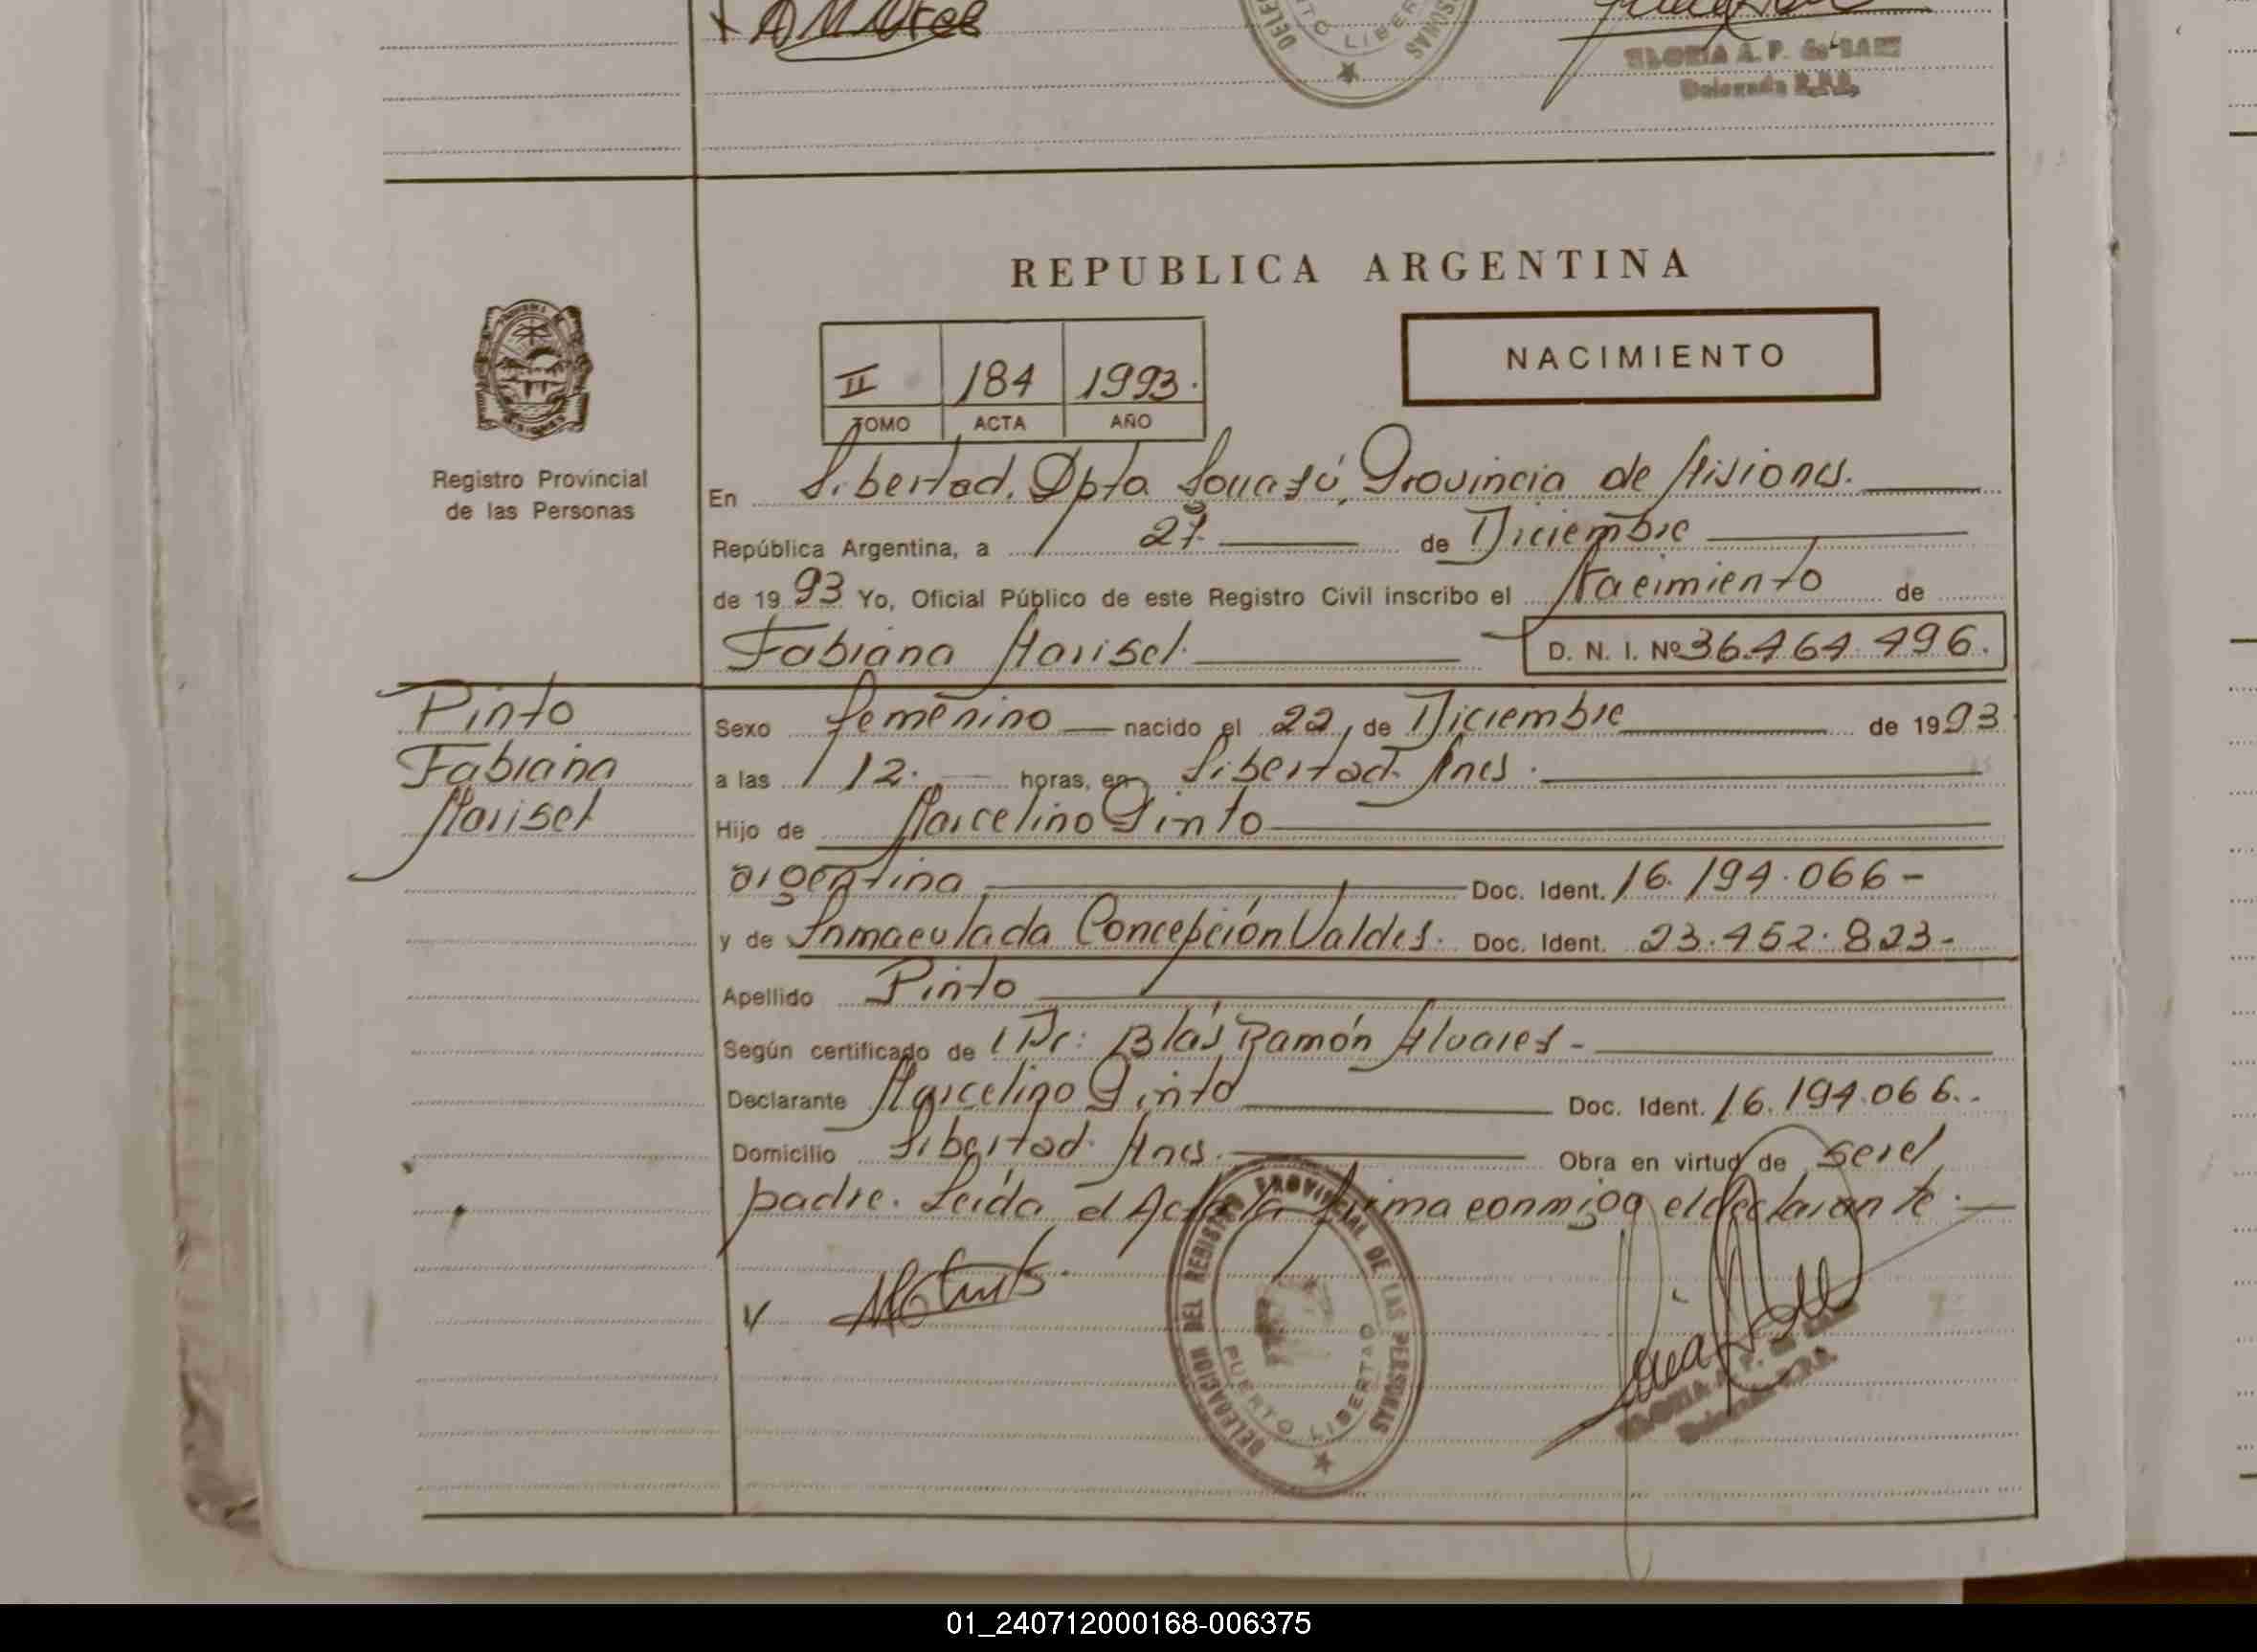 DELE
TO LIBER
SONAS
GLORIA A. P. de BAEZ
Delegada R.P.P.
REPUBLICA ARGENTINA
NACIMIENTO
II 184 1993.
TOMO ACTA AÑO
Registro Provincial
de las Personas
En Libertad, Dpto Iguazú, Provincia de Misiones.
República Argentina, a 27 de Diciembre
de 1993 Yo, Oficial Público de este Registro Civil inscribo el Nacimiento de
Fabiana Marisel D. N. I. Nº 36.464.496.
Pinto
Fabiana
Marisel
Sexo femenino nacido el 22, de Diciembre de 1993
a las 12. horas, en Libertad Mnes.
Hijo de Marcelino Pinto
argentina Doc. Ident. 16.194.066-
y de Inmaculada Concepción Valdes. Doc. Ident. 23.452.823-
Apellido Pinto
Según certificado de Dr: Blás Ramón Alvares-
Declarante Marcelino Pinto Doc. Ident. 16.194.066.
Domicilio Libertad Mnes. Obra en virtud de ser el
padre. Leída el Acta la firma conmigo el declarante.
DELEGACION DEL REGISTRO PROVINCIAL DE LAS PERSONAS
PUERTO LIBERTAD
GLORIA A. P. de BAEZ
Delegada R.P.P.
01_240712000168-006375